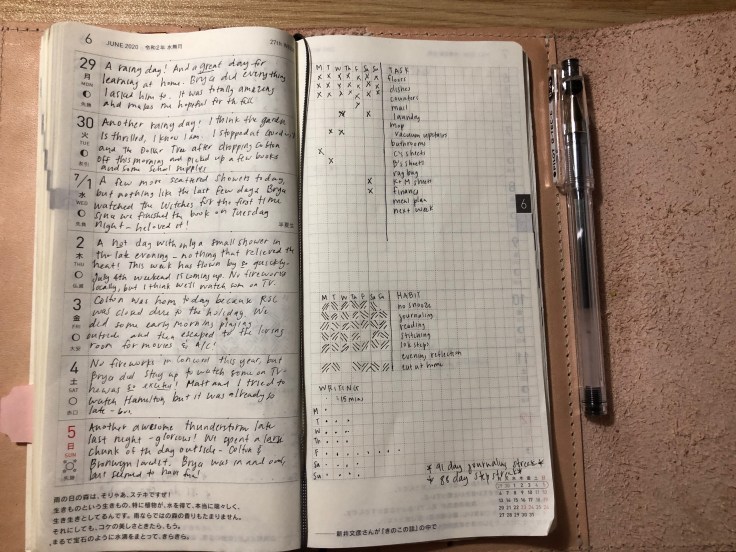 6 JUNE 2020 令和2年 水無月 27th
29 月 MON 先勝
A rainy day! And a great day for
learning at home. Bryce did everything
I asked him to. It was totally amazing
and makes me hopeful for the fall
30 火 TUE 友引
Another rainy day! I think the garden
is thrilled, I know I am. I stopped at Goodwill
and the Dollar Tree after dropping Colton
off this morning and picked up a few books
and some school supplies
7/1 水 WED 先負
A few more scattered showers today,
but nothing like the last few days. Bryce
watched the Witches for the first time
since we finished the book on Tuesday
night - he loved it!
2 木 THU 仏滅
A hot day with only a small shower in
the late evening - nothing that relieved the
heat! This week has flown by so quickly.
July 4th weekend is coming up. No fireworks
locally, but I think we'll watch on TV.
3 金 FRI 大安
Colton was home today because RSC
was closed due to the holiday. We
did some early morning playing
outside and then escaped to the living
room for movies & A/C!
4 土 SAT 赤口
No fireworks in Concord this year, but
Bryce did stay up to watch some on TV.
He was so excited! Matt and I tried to
watch Hamilton, but it was already so
late -
5 日 SUN 先勝
Another awesome thunderstorm late
last night - glorious! We spent a large
chunk of the day outside - Colton &
Bronwyn loved it. Bryce was in and out,
but seemed to have fun!
雨の日の森は、そりゃあ、ステキですぜ!
生きものという生きもの、特に植物が、水を得て、本当に瑞々しく、
生き生きとしてるんです。雨ならではの森の香りもたまりません。
それにしても、コケの美しさときたら、もう。
まるで宝石のように水滴をまとって、きらきら。
M T W Th F Sa Su TASK
floors
dishes
counters
mail
laundry
mop
vacuum upstairs
bathrooms
C's sheets
B's sheets
rag bag
K+M sheets
finances
meal plan
next week
6
M T W Th F Sa Su HABIT
no snooze
journaling
reading
stitching
10k steps
evening reflection
eat at home
WRITING
= 15 mins
M
T
W
Th
F
Sa
Su
* 91 day journaling streak *
* 88 day step streak *
新井文彦さんが『きのこの話』の中で